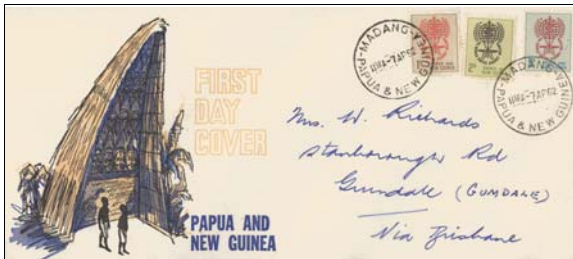 FIRST
DAY
COVER
PAPUA AND
NEW GUINEA
MADANG
PAPUA & NEW GUINEA
7 AP 62
MADANG
PAPUA & NEW GUINEA
7 AP 62
Mrs. W. Richards
Stanborough Rd
Grundale (GUMDALE)
Via Brisbane